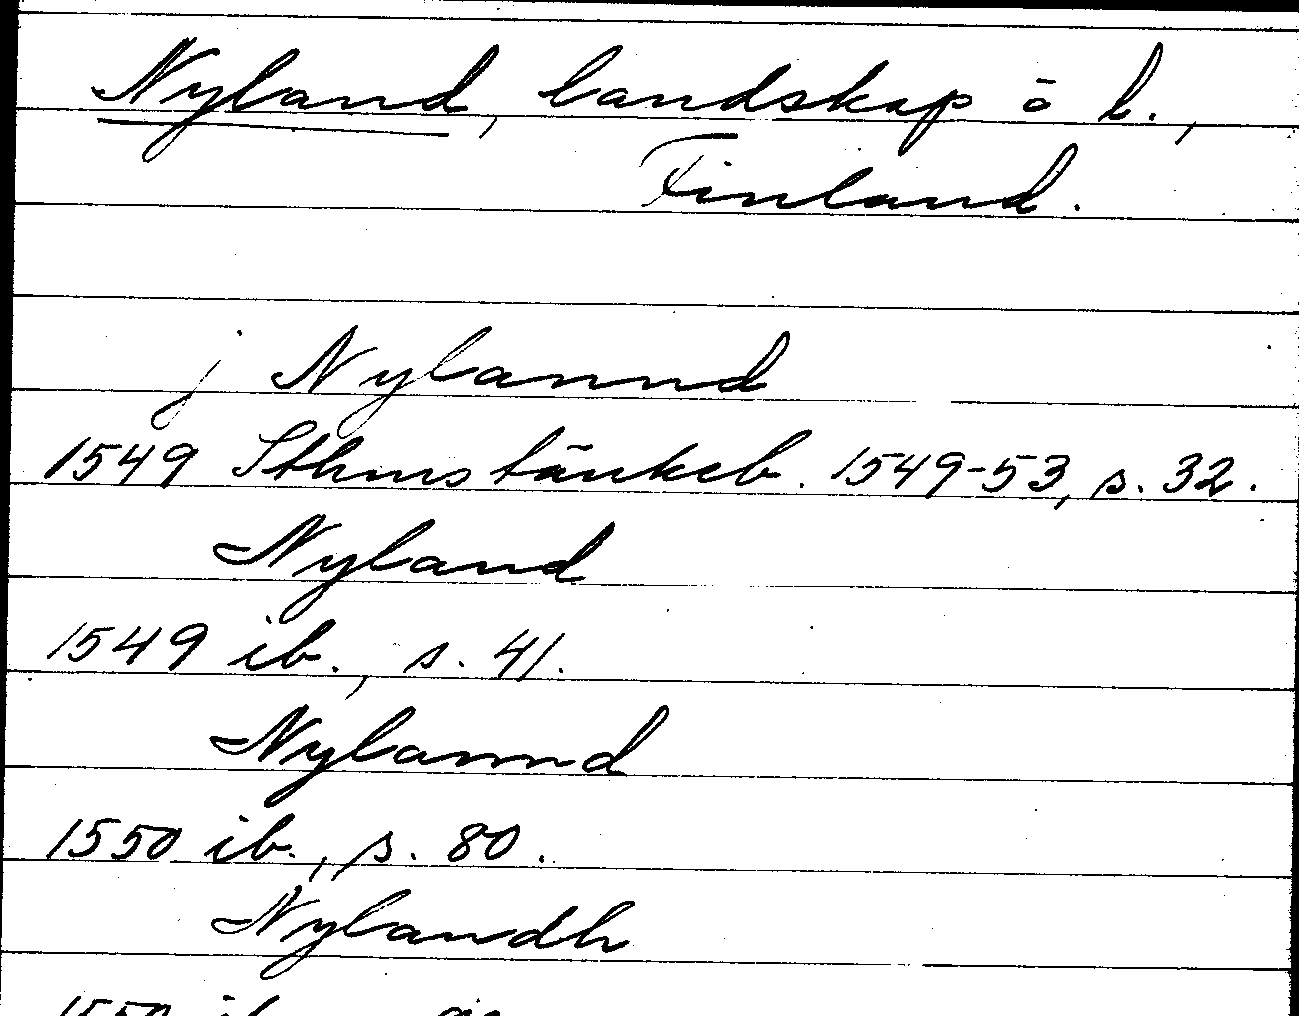 Nyland, landskap o l.,
Finland.
j Nylannd
1549 Sthms tänkeb. 1549-53, s. 32.
Nyland
1549 ib., s. 41.
Nylannd
1550 ib., s. 80.
Nylandh
1550 ib